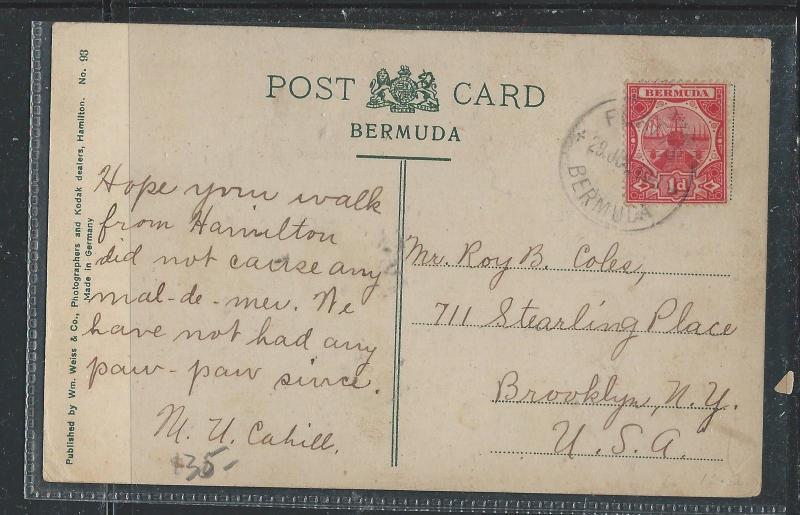 POST CARD
BERMUDA
Published by Wm. Weiss & Co., Photographers and Kodak dealers, Hamilton. No. 93
Made in Germany
Hope your walk
from Hamilton
did not cause any
mal-de-mer. We
have not had any
paw-paw since.
M. U. Cahill.
35-
BERMUDA
1d
BERMUDA
Mr. Roy B. Coles,
711 Stearling Place
Brooklyn, N.Y.
U.S.A.